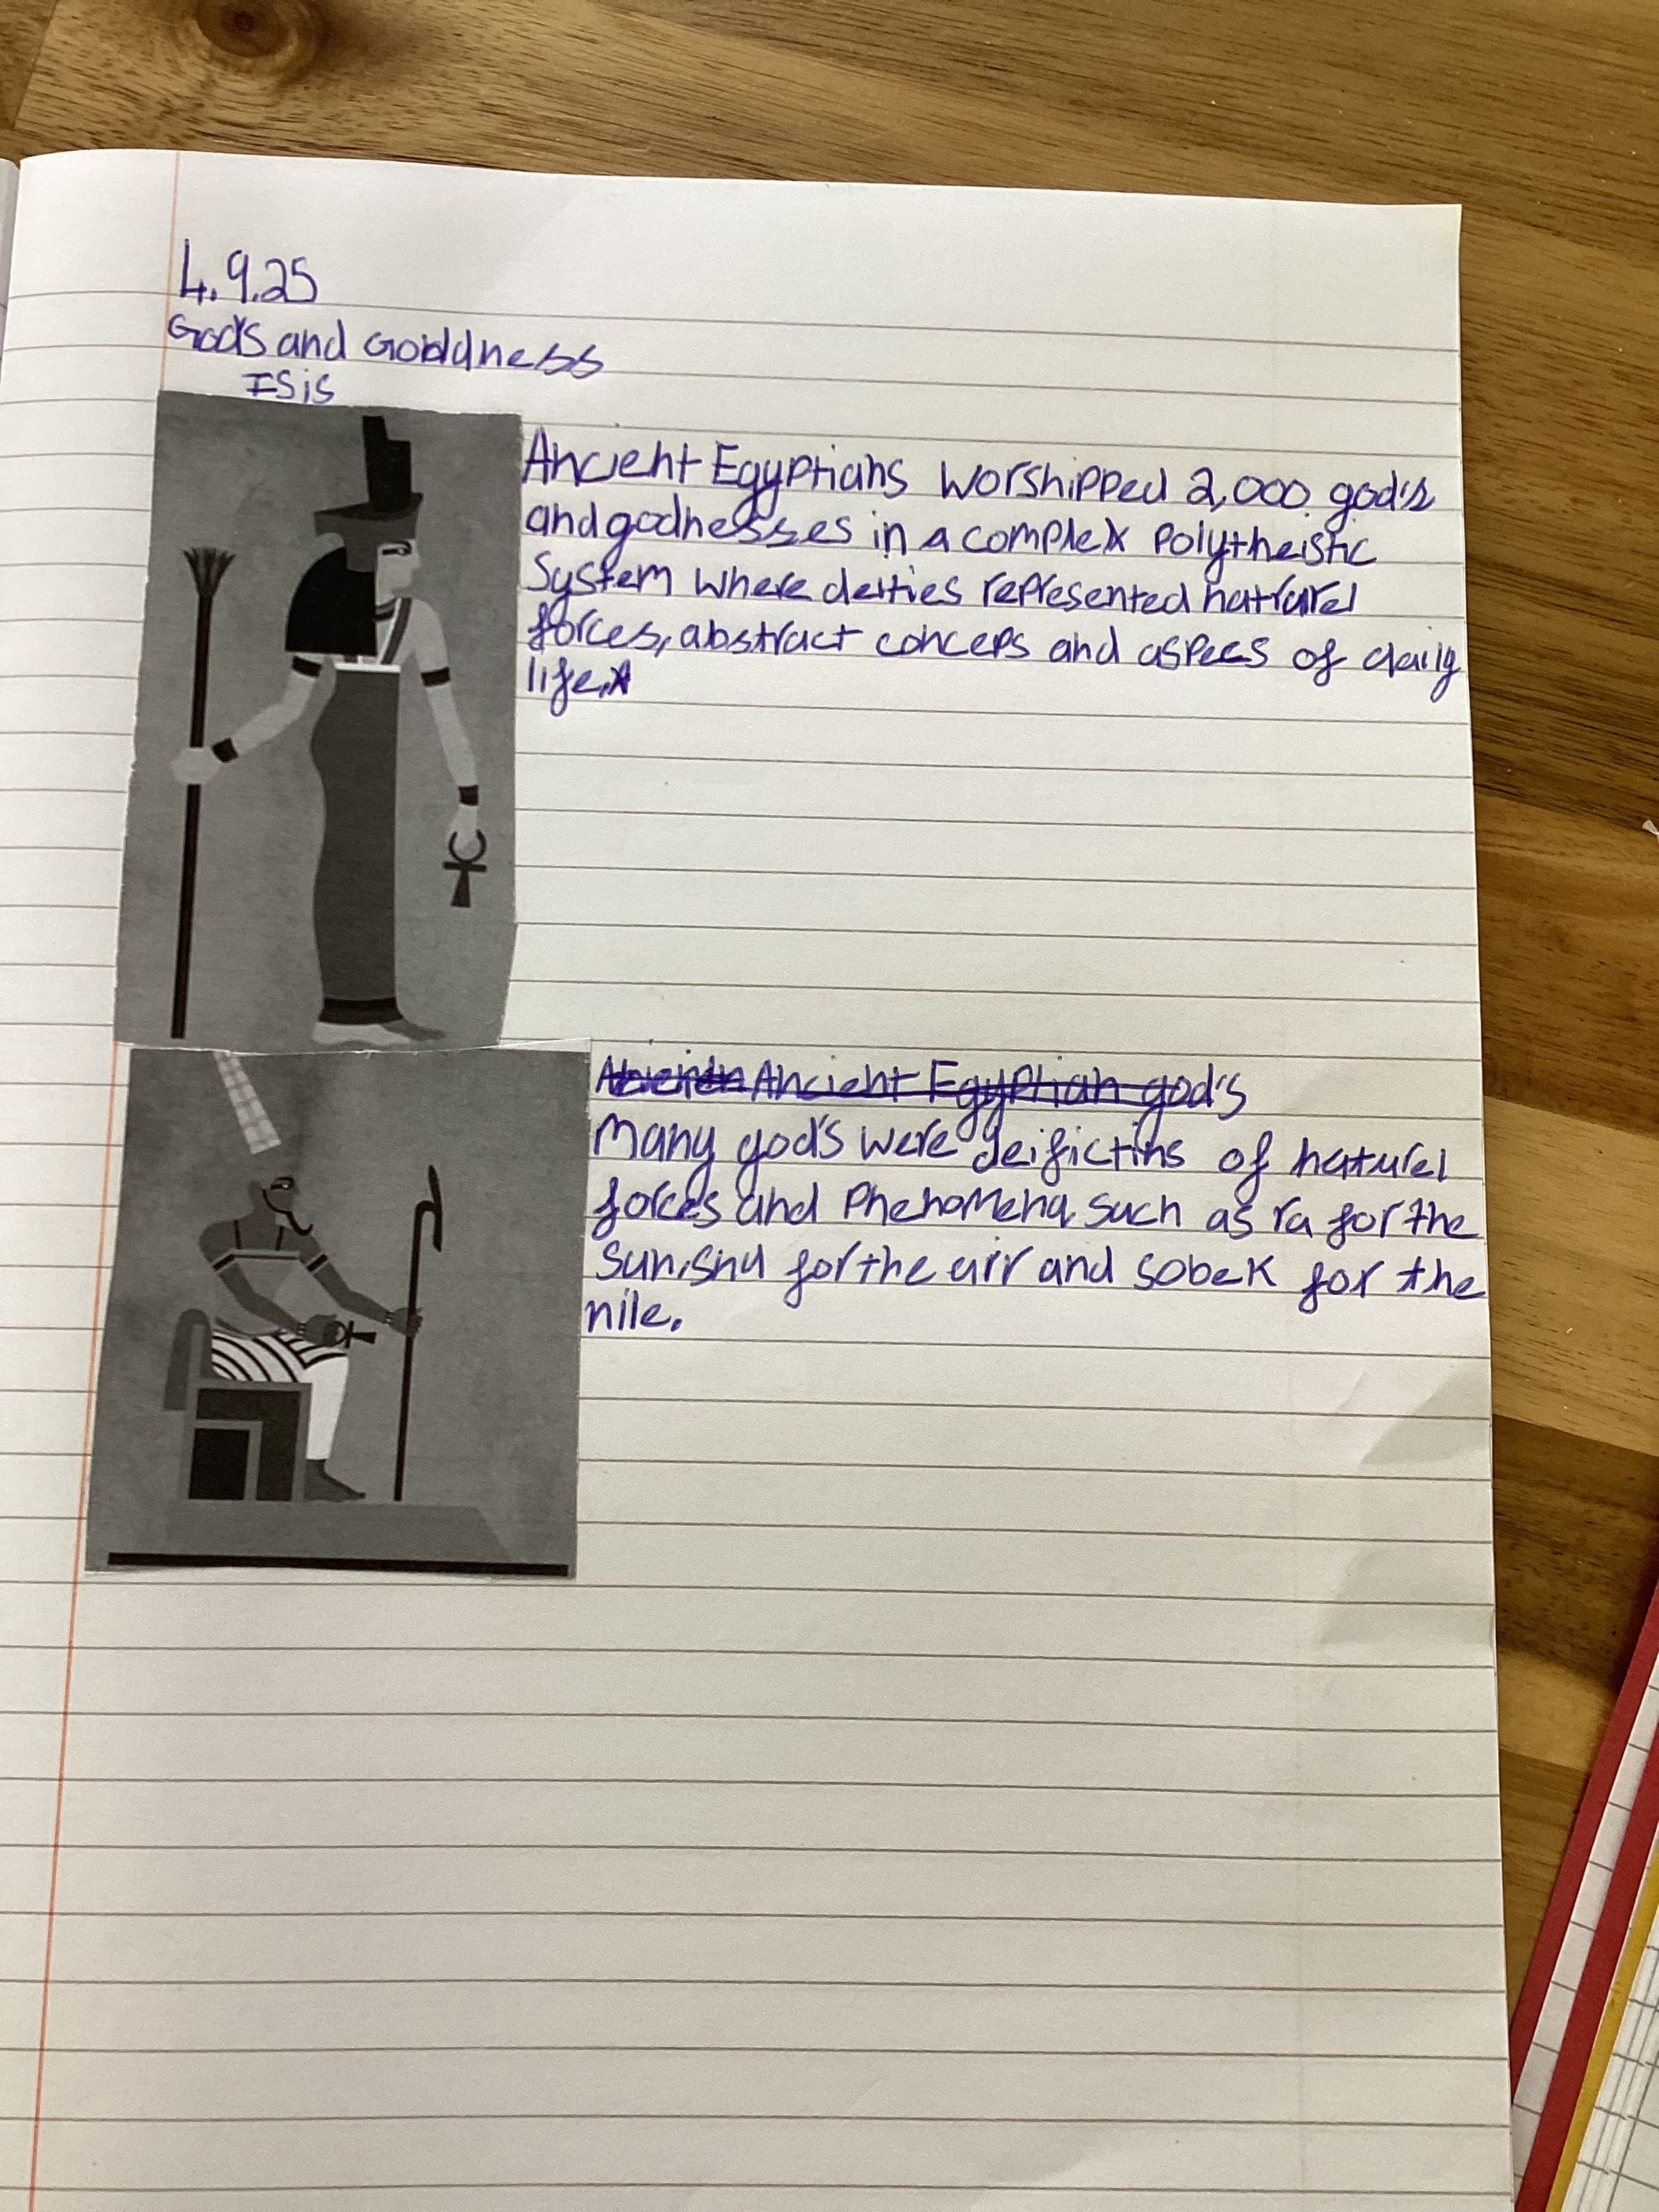 4.9.25
God's and Godddness
ISis
Ancient Egyptians worshipped 2,000 god's
and godnesses in a complex polytheistic
System where deities represented natrurel
forces, abstract conceps and aspecs of daily
life.
Ancient Egyptian god's
Many god's were deifictins of naturel
forces and Phenomena such as ra for the
sun, shu for the air and sobek for the
nile.